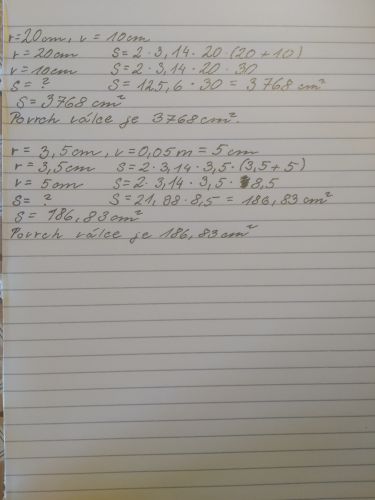 r=20cm, v = 10cm
r = 20cm S = 2 · 3,14 · 20 · (20 + 10)
v = 10cm S = 2 · 3,14 · 20 · 30
S = ? S = 125,6 · 30 = 3 768 cm²
S = 3768 cm²
Povrch válce je 3768 cm².
r = 3,5cm, v = 0,05 m = 5 cm
r = 3,5cm S = 2 · 3,14 · 3,5 · (3,5 + 5)
v = 5cm S = 2 · 3,14 · 3,5 · 8,5
S = ? S = 21,98 · 8,5 = 186,83 cm²
S = 186,83 cm²
Povrch válce je 186,83 cm²